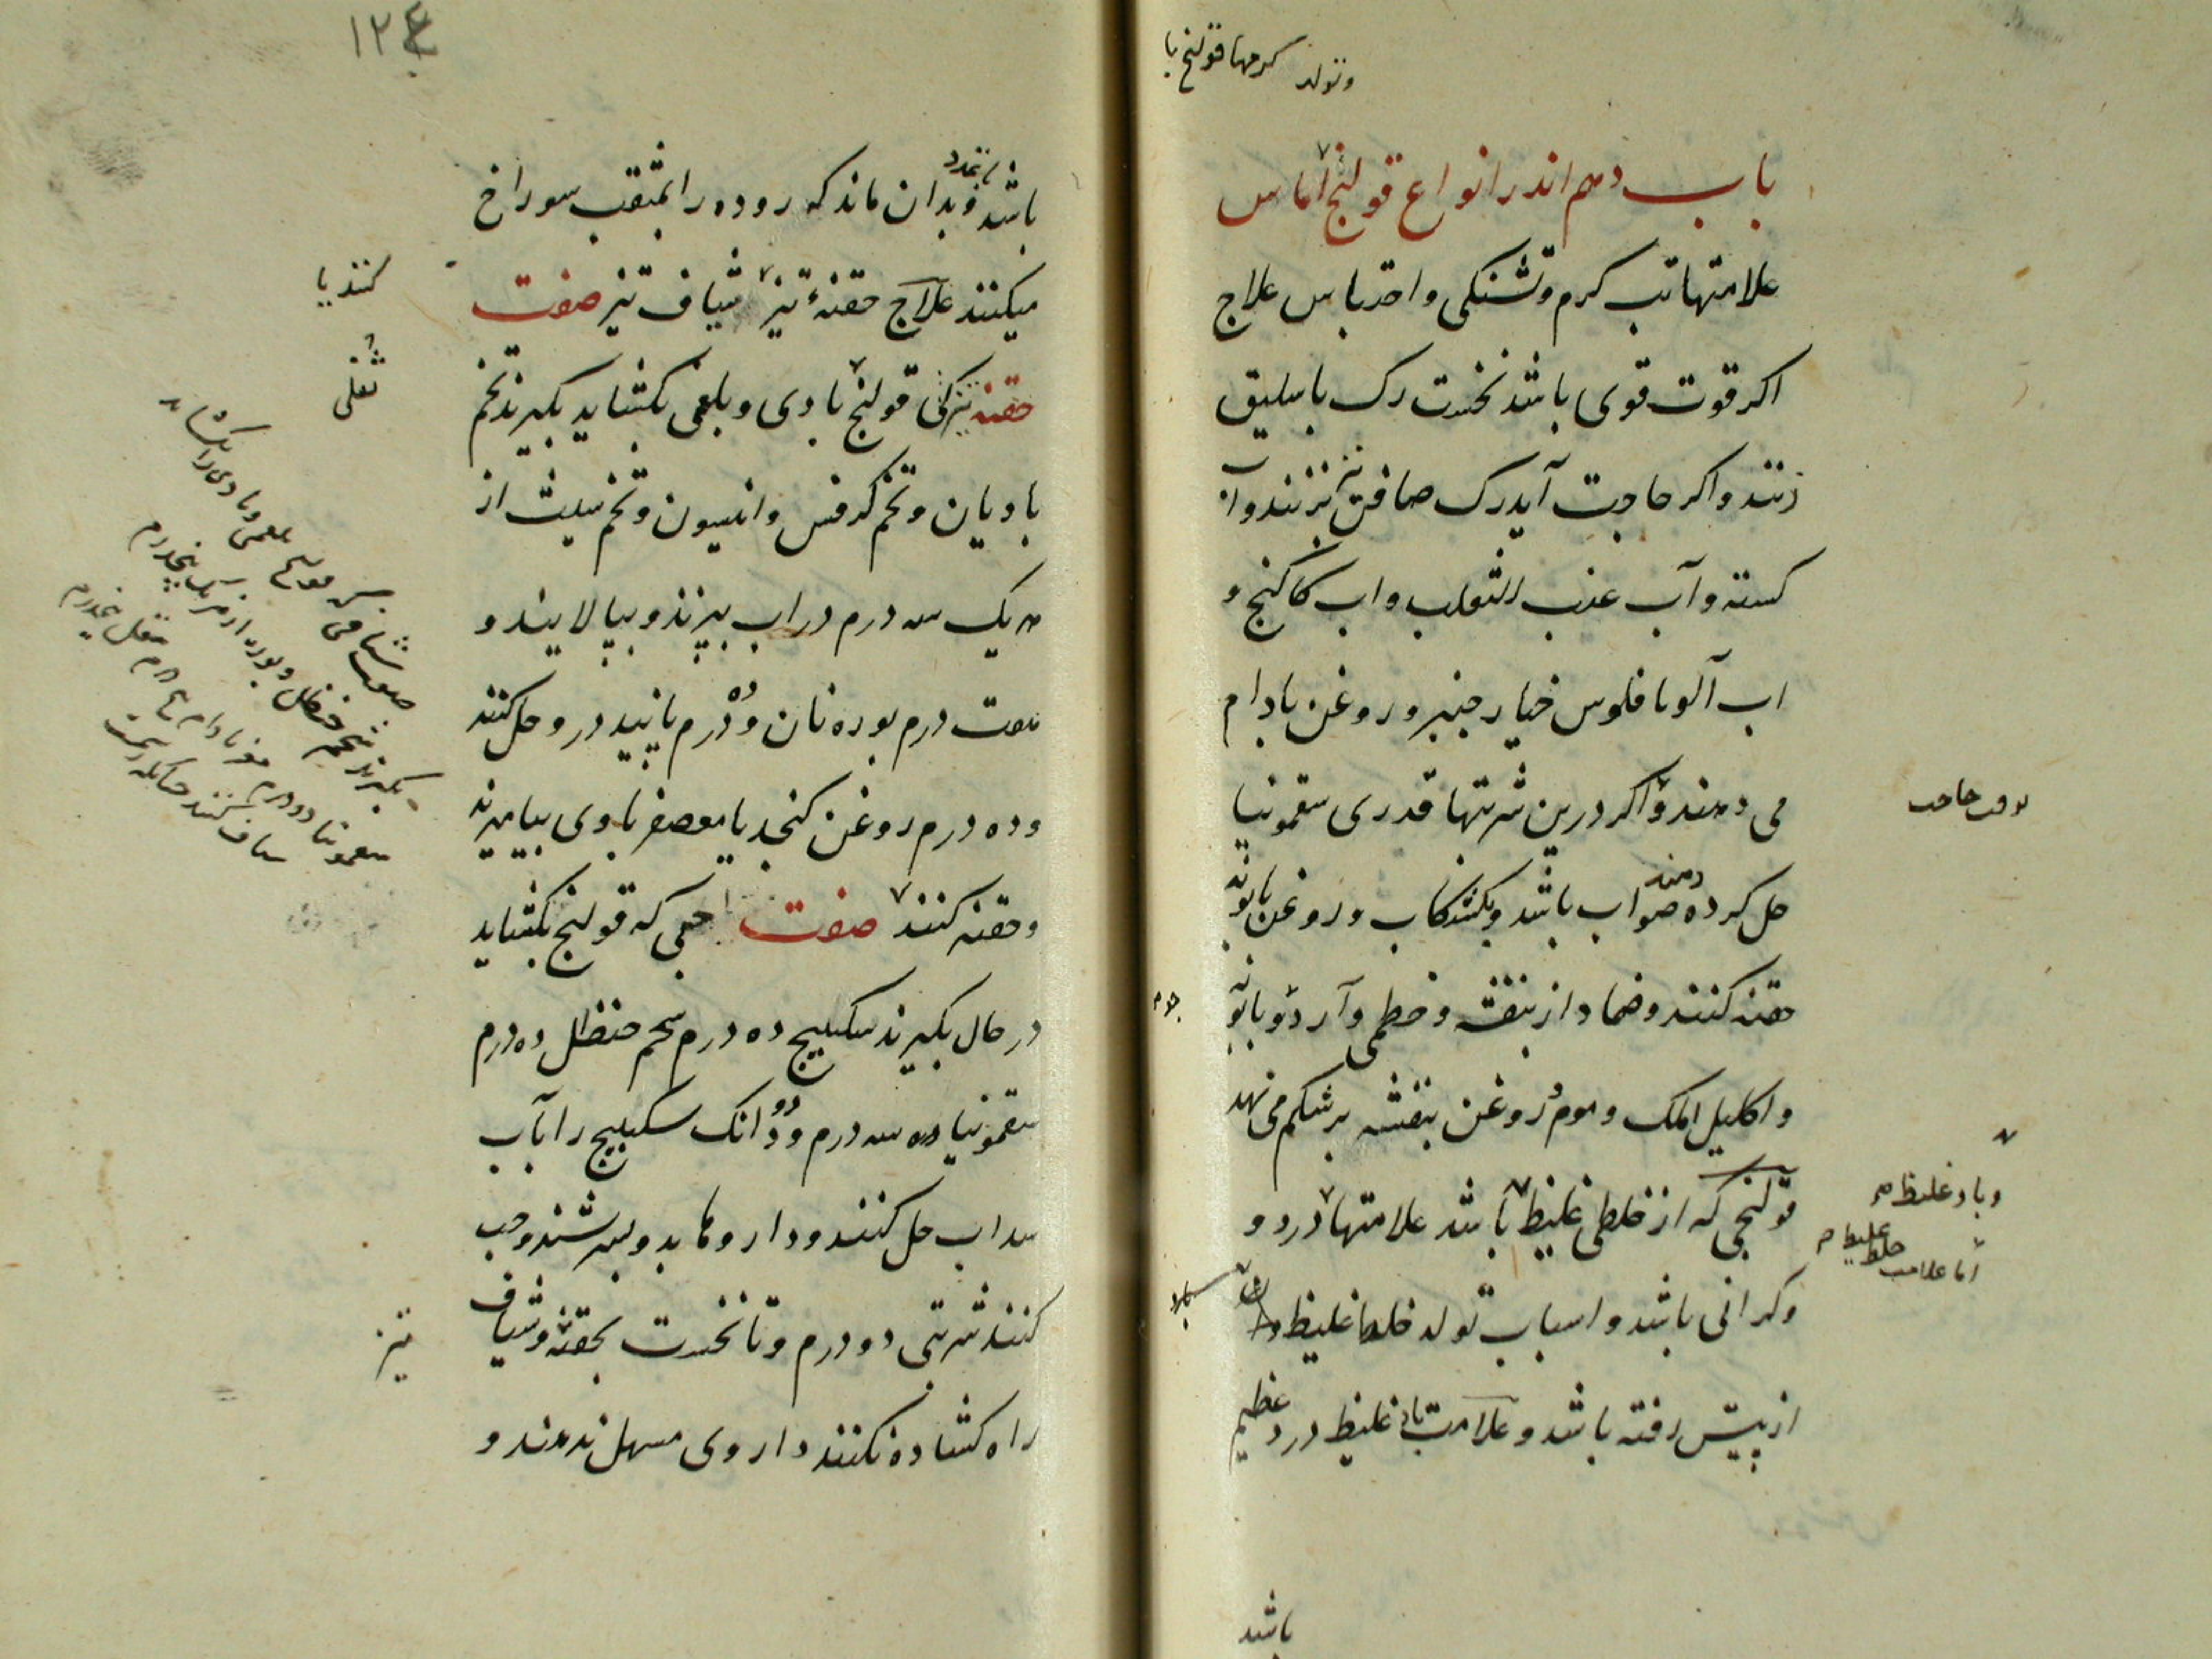 وتولد کرمها قولنج با
باب دهم اندر انواع قولنج آماس
علامتها تب کرم وتشنکی واحتباس علاج
اکر قوت قوی باشد نخست رک باسلیق
زنند واکر حاجت آید رک صافن نیز بزنند وآب
کسنه وآب عنب الثعلب واب کاکنج و
اب آلو با فلوس خیار جنبر وروغن بادام
می دهند واکر درین شربتها قدری سقمونیا
بوقت حاجت
حل کرده دهند صواب باشد وبکشکاب وروغن بابونه
حقنه کنند وضماد از بنفشه وخطمی وآرد جو وبابونه
واکلیل الملک وموم روغن بنفشه بر شکم می نهند
قولنجی که از خلطی غلیظ باشد علامتها درد و
وباد غلیظ
اما علامت خلط غلیظ
وکرانی باشد واسباب تولد خلط غلیظ
از پیش رفته باشد وعلامت باد غلیظ درد عظیم
باشد
۱۲۴
باشد با تمدد وبدان ماند که روده را بمثقب سوراخ
میکنند علاج حقنهٔ تیز شیاف تیز صفت
کنند یا
حقنه تیز کی قولنج بادی وبلغمی بکشاید بکیرند تخم
ثفلی
بادیان وتخم کرفس وانیسون وتخم شبت از
هر یک سه درم در اب بپزند وبپالایند و
هفت درم بوره نان وده درم پانید درو حل کنند
وده درم روغن کنجد یا معصفر باوی بیامیزند
وحقنه کنند صفت حبی که قولنج بکشاید
در حال بکیرند سکبینج ده درم شحم حنظل ده درم
سقمونیا سه درم ودو دانک سکبینج را بآب
سداب حل کنند وداروها بدو بسرشند وحب
کنند شربتی دو درم وتا نخست بحقنه وشیاف
تیز
راه کشاده نکنند داروی مسهل ندهند و
صفت شیافی که قولنج بلغمی وبادی را بکشاید
بکیرند شحم حنظل وبوره از هر یک پنجدرم
سقمونیا دو درم
شیاف کنند چنانکه رسمست